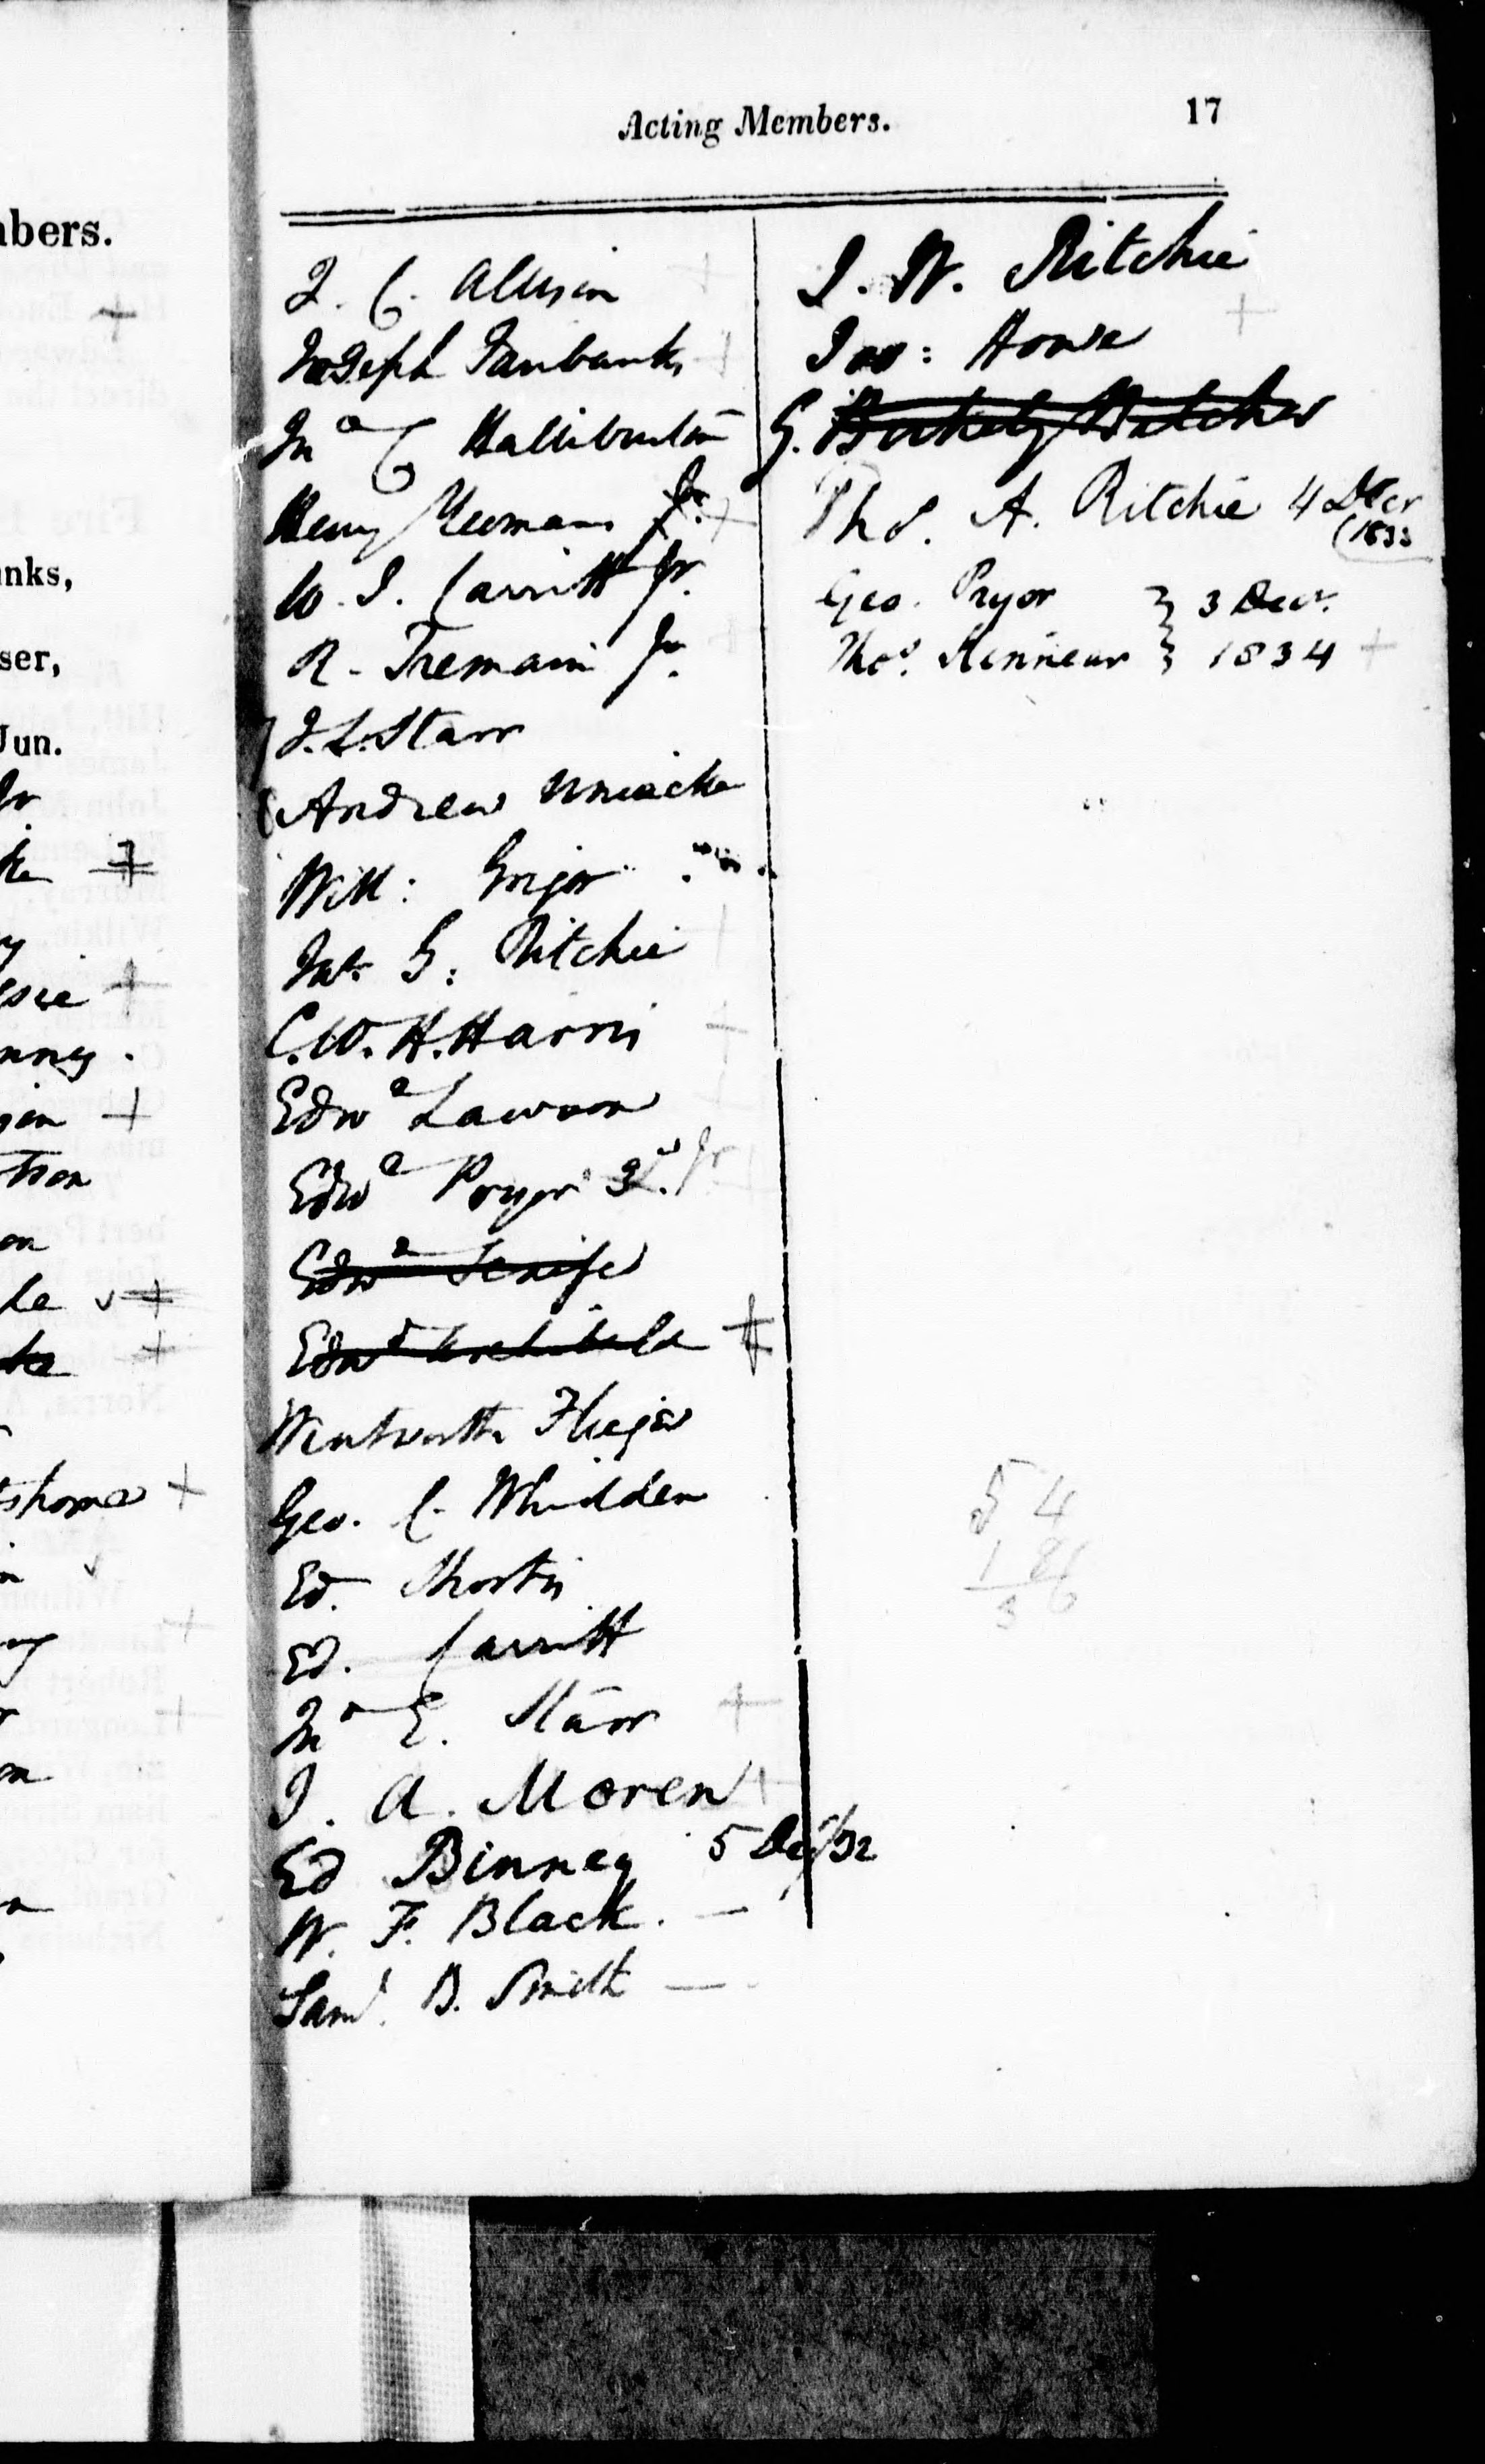 Acting Members. 17
J. C. Allison +
Joseph Fairbanks +
Jno C Halliburton
Henry Yeomans Jr. +
W. J. Carritt Jr.
R. Tremain Jr.
J. L. Starr
Andrew Uniacke
Will: Grigor
Jas G: Ritchie
C. W. H. Harris +
Edwd Lawson
Edwd Pryor 3d. Jr
Edwd Jenifer
Edwd Archibald +
Wentworth Flieger
Geo. C. Whidden
Ed. Shortis
Ed. Carritt
Jno E. Starr +
J. A. Moren +
Ed Binney 5 Dec/32
W. F. Black. —
Saml. B. Smith —
J. W. Ritchie
Jos: Howe +
G.
Thos. A. Ritchie 4 Dcer
(1833
Geo. Pryor } 3 Decr.
Thos. Kinnear } 1834 +
5 4
1 8
3 6
mbers.
+
anks,
ser,
Jun.
Jr